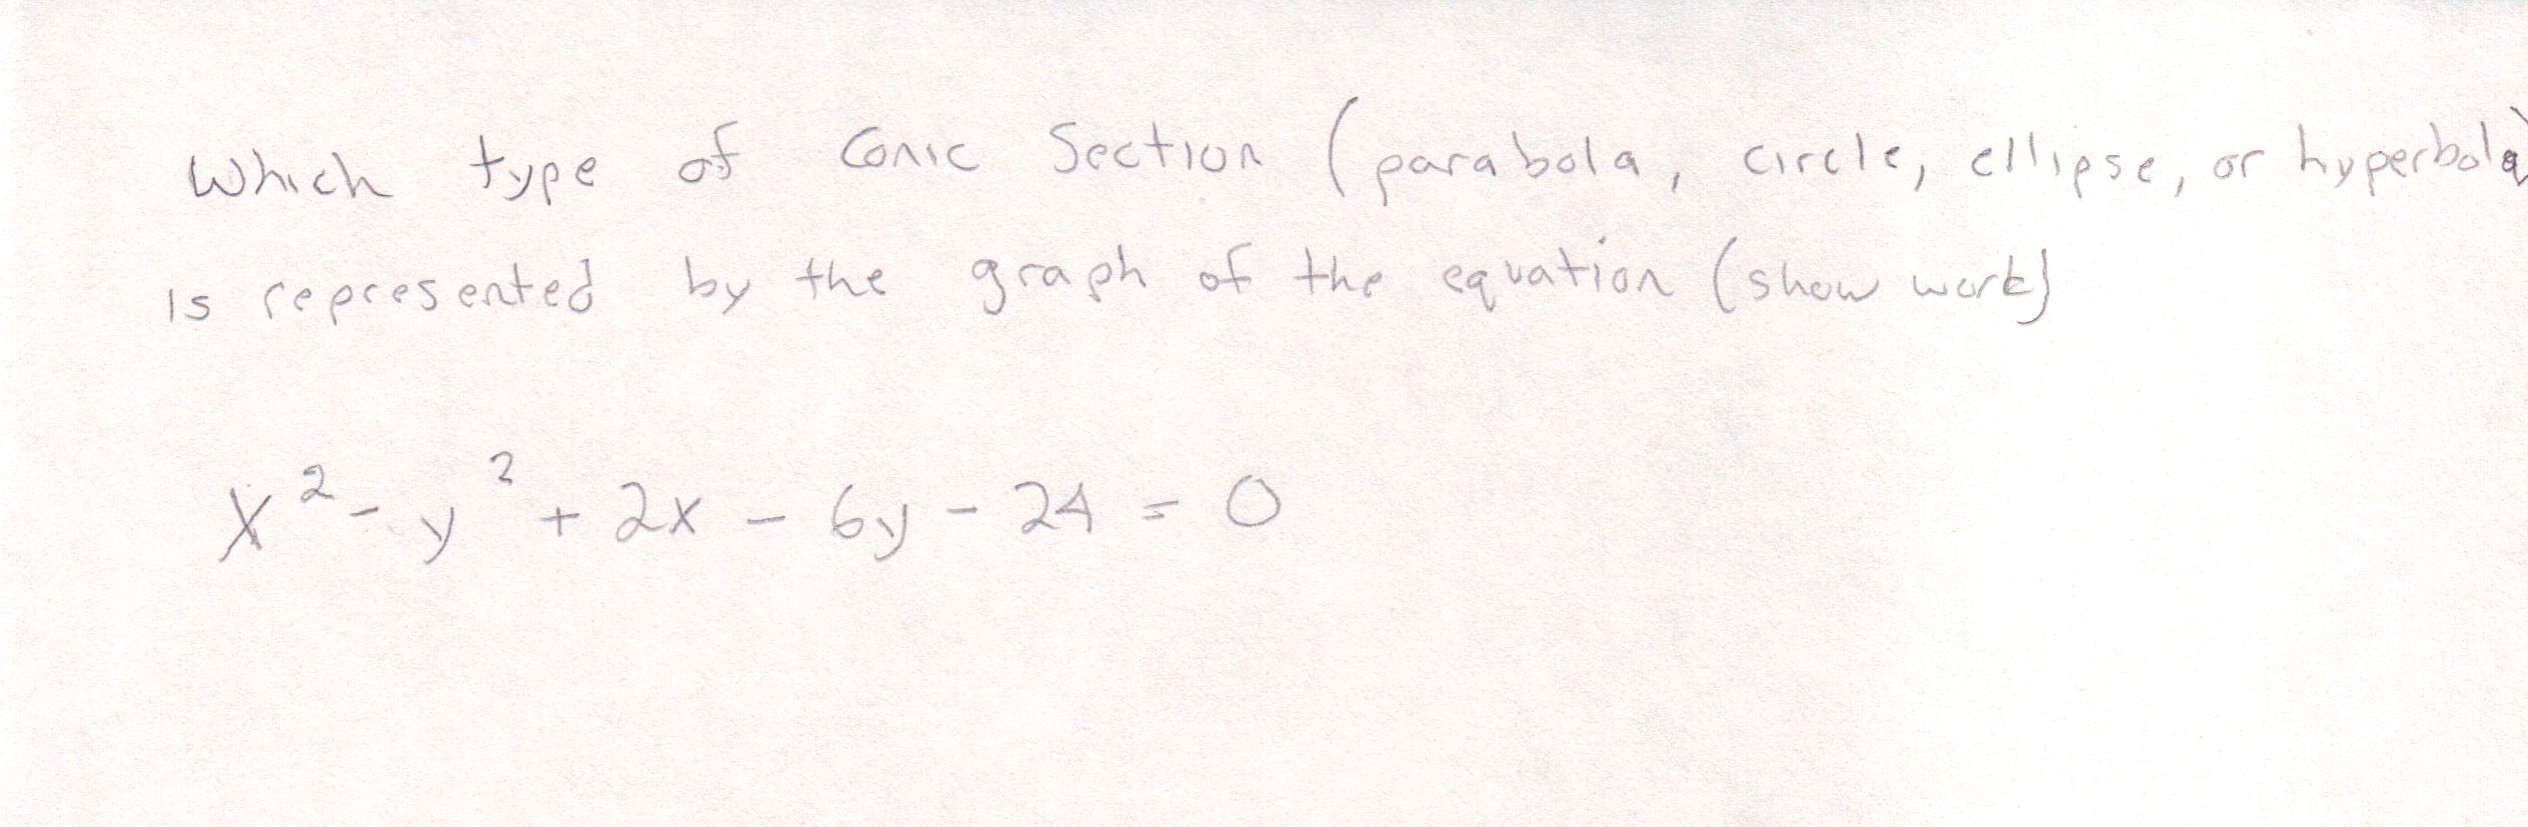 Which type of Conic Section (parabola, circle, ellipse, or hyperbola)
is represented by the graph of the equation (show work)
x² - y² + 2x - 6y - 24 = 0